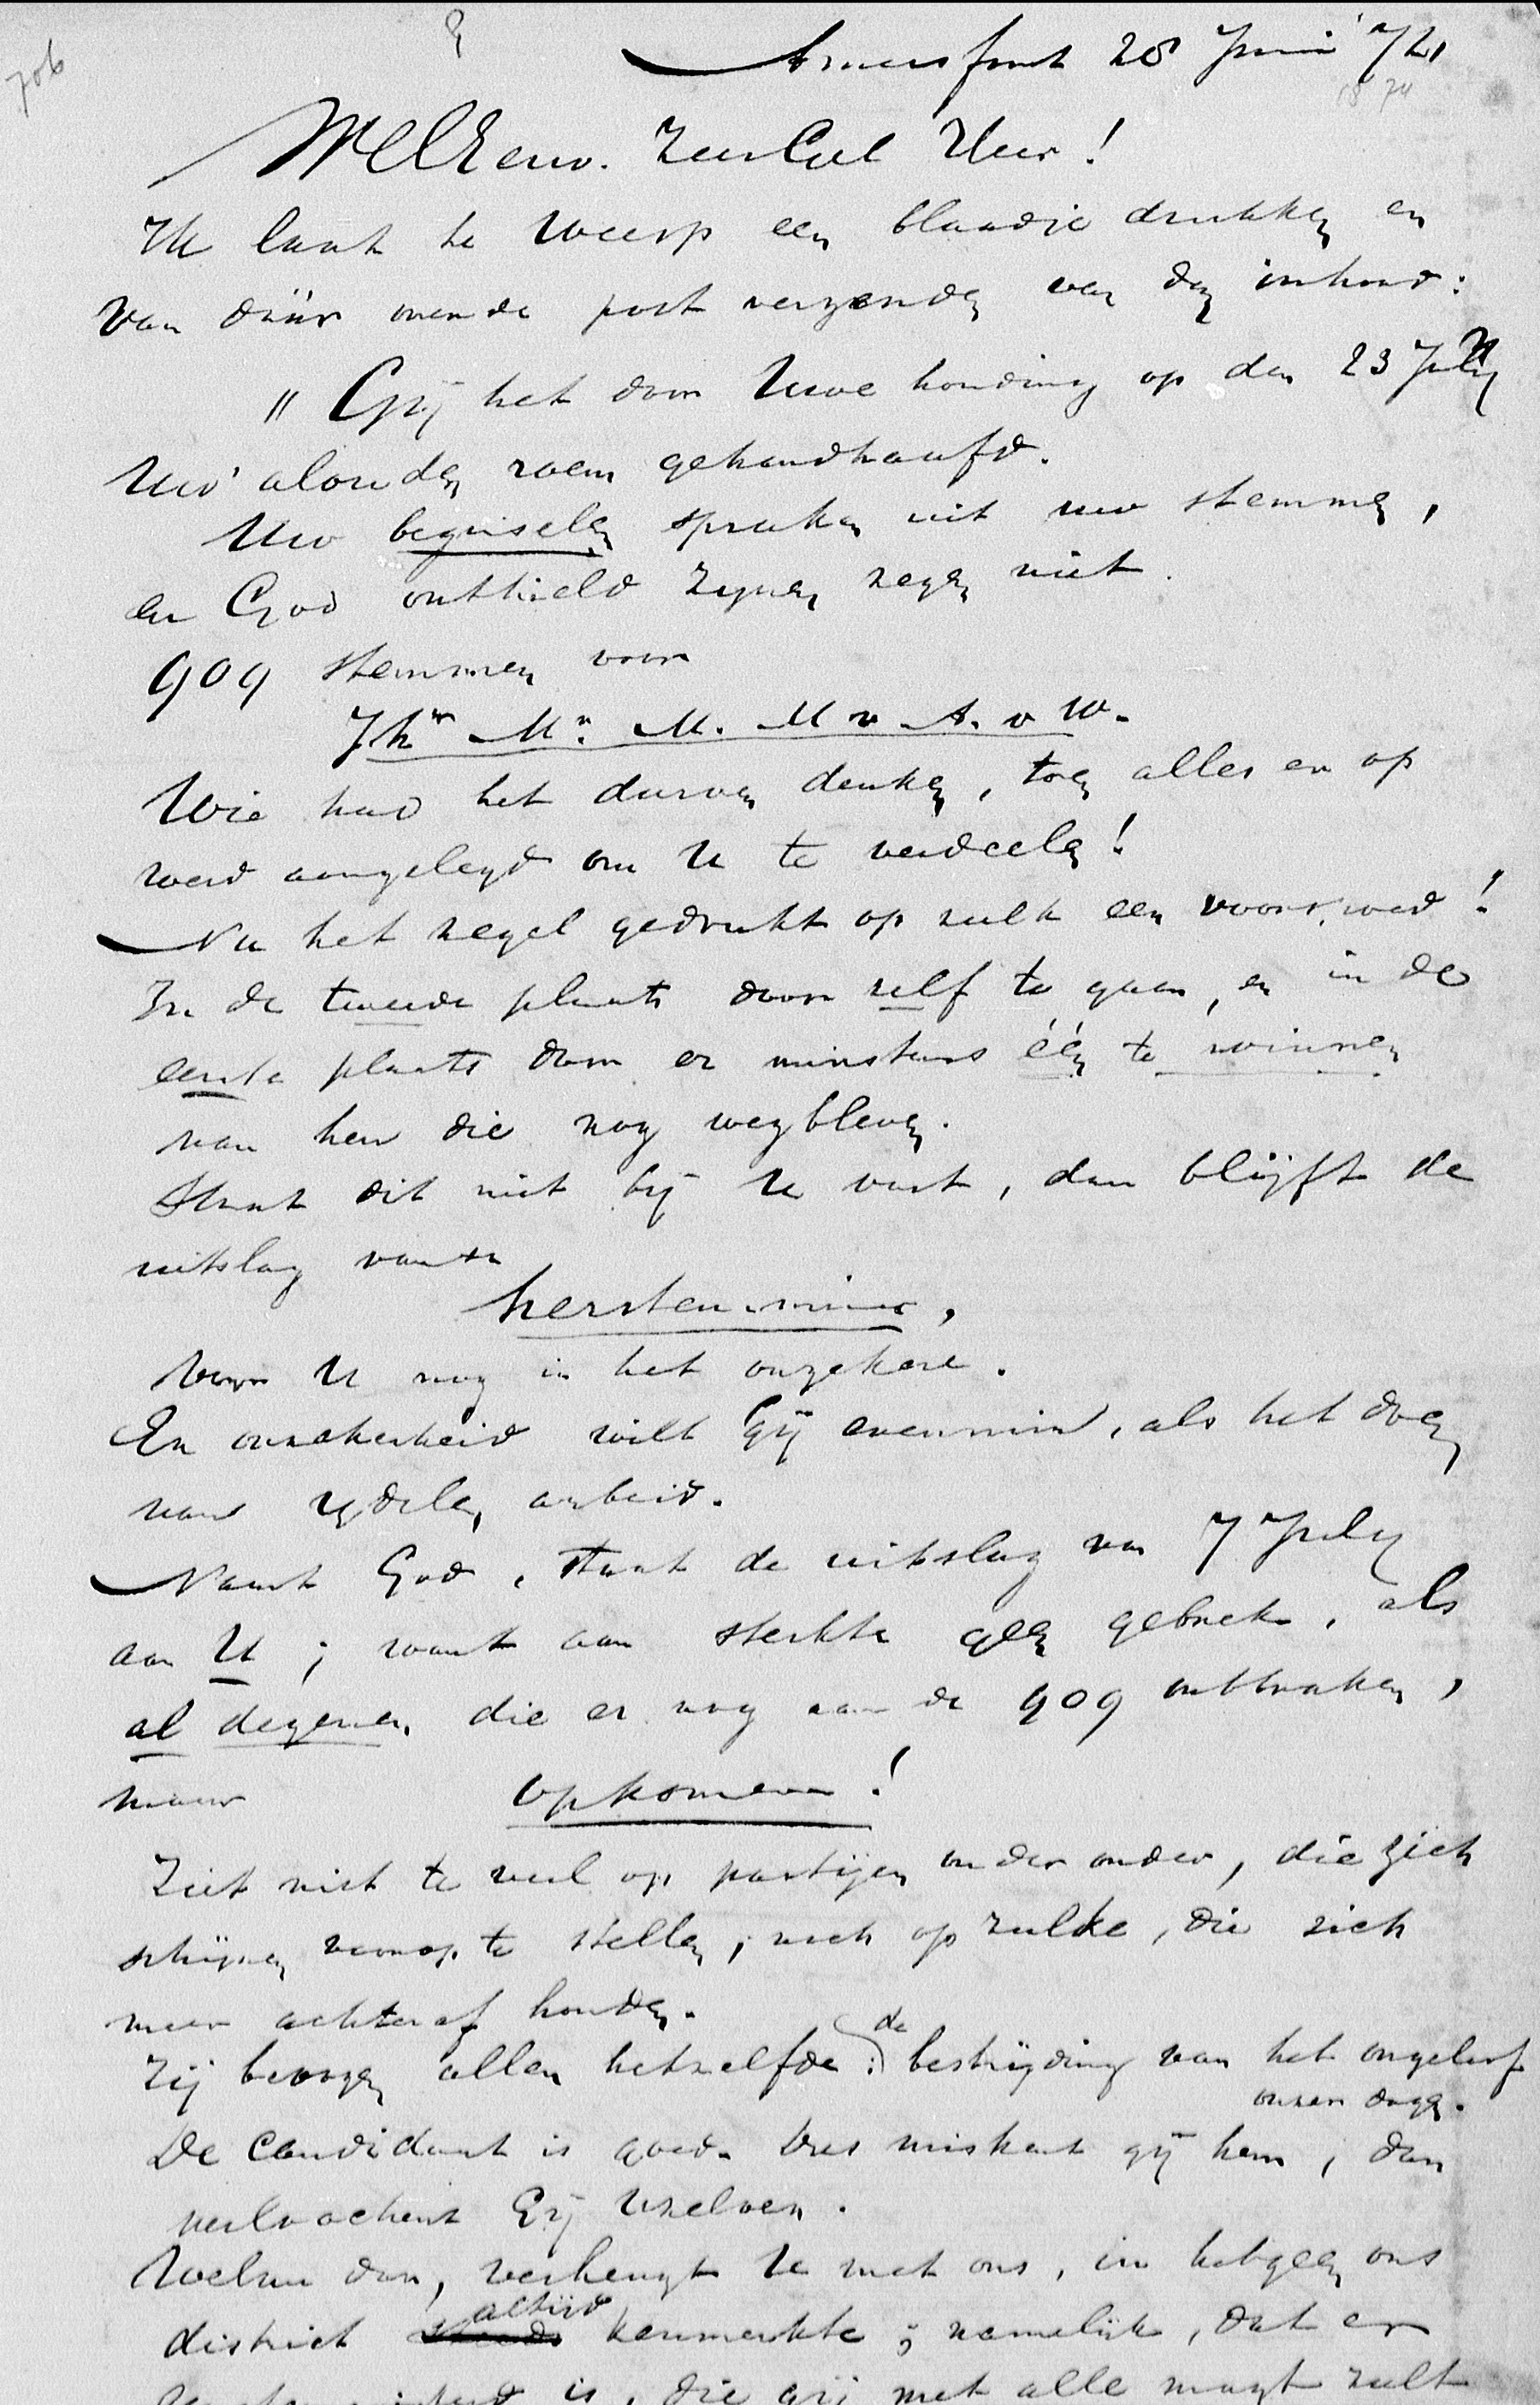 706
Amersfoort 28 Juni '74
18 74
WelEerw. Zeer Gel Heer!
Ik laat te Weesp een blaadje drukken en
van dáár over de post verzenden van den inhoud:
" Gij hebt door Uwe houding op den 23 July
Uw' alouden roem gehandhaafd.
Uw beginselen spraken uit uw stemmen,
en God onthield zynen zegen niet.
909 stemmen voor
Jhr Mr. M. M v A. v W.
Wie had het durven denken, toen alles er op
werd aangelegd om U te verdeelen!
Nu het zegel gedrukt op zulk een voorspoed!
In de tweede plaats door zelf te gaan, en in de
eerste plaats door er minstens één te winnen
van hen die nog wegbleven.
Staat dit niet bij U vast, dan blijft de
uitslag van de
herstemming,
voor U nog in het onzekere.
En onzekerheid wilt Gij evenmin, als het doen
van ydelen arbeid.
Naast God, staat de uitslag van 7 July
aan U; want aan sterkte geen gebrek, als
al degenen die er nog aan de 909 ontbraken,
maar opkomen!
Ziet niet te veel op partijen onder ander, die zich
schijnen voorop te stellen, noch op zulke, die zich
meer achteraf houden.
Zij beoogen allen hetzelfde: de bestrijding van het ongeloof
onzer dagen.
De Candidaat is goed. Dus miskent gij hem, dan
verloochent Gij Uzelven.
Welnu dan, verheugt U met ons, in hetgeen ons
district altijd kenmerkte; namelijk, dat er
is, die gij met alle magt zult